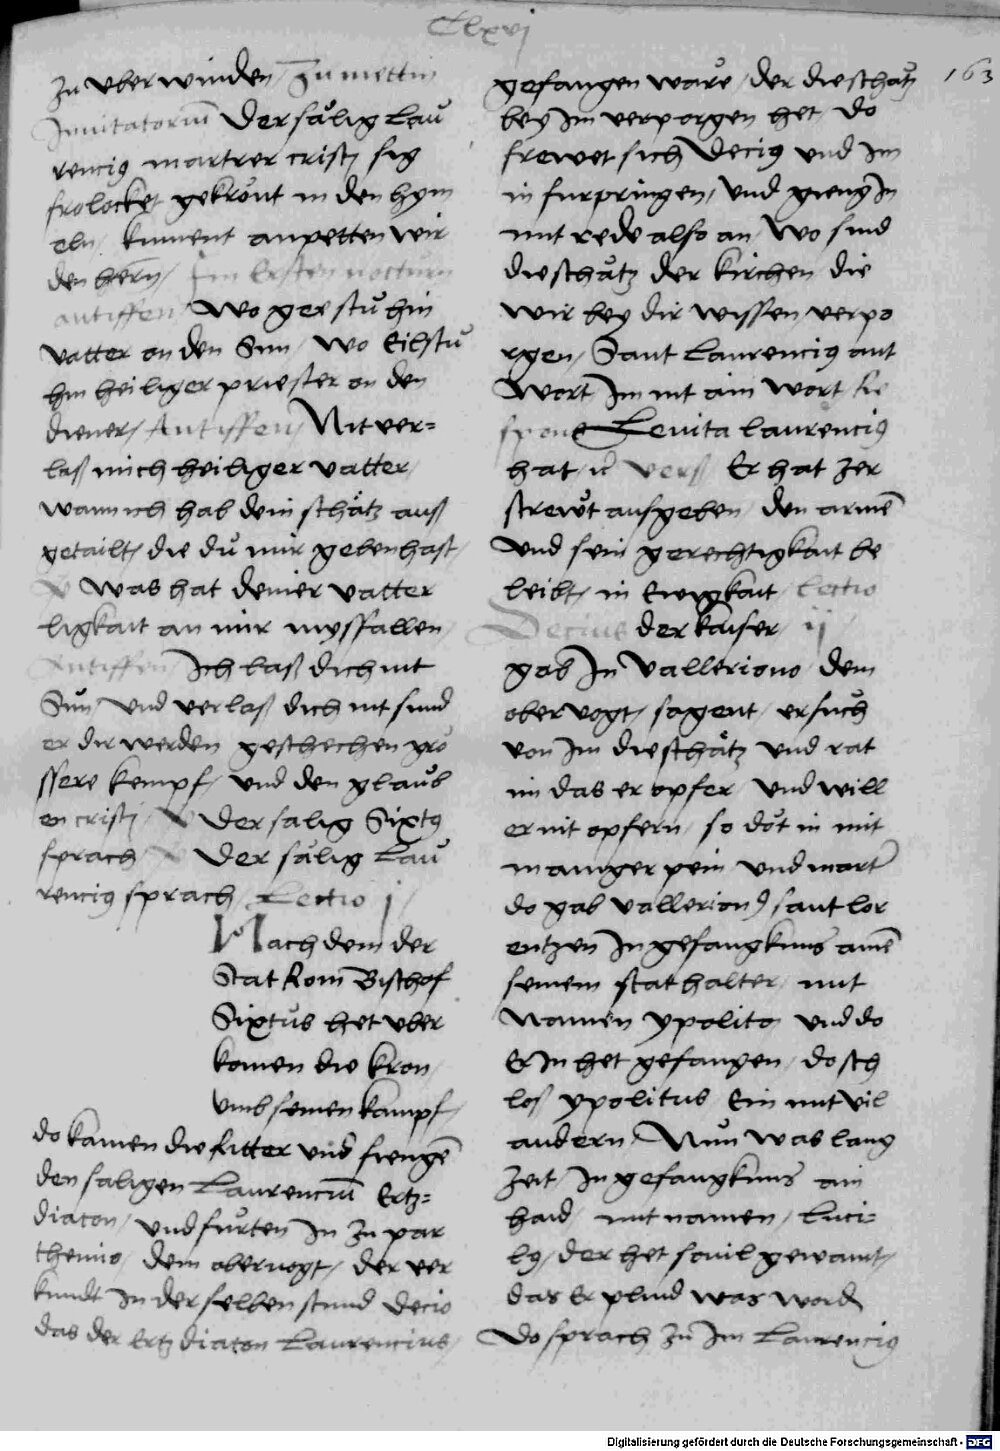 Clxvj
163
zu vberwinden / Zu mettin
Inuitatoriu͂ Der såͤlig Lau
rencig martrer cristj sig
frolocket gekroͤnt in den hym
eln / kument anpetten wir
den hern / Im Ersten nocturn
antiffen / Wo gee stu hin
vatter on den Sun / Wo Eilstu
hin heiliger priester on den
diener / Antiffen / Nit ver=
laß mich heiliger vatter /
wann ich hab dein schåtz auß
getailt / die du mir geben hast /
V Was hat deinier vatter
ligkait an mir myssfallen /
Antiffen / Ich laß dich nit
Sun / Vnd verlaß dich nit sund
er dir werden geschechen gro
ssere kempf / vnd den glaub
en cristj / V Der salig Sixtg
sprach / V Der sålig Lau
rencig sprach / Lectio j /
Nach dem der
Stat Rom Bischof
Sixtus het vber
komen die kron /
vmb seinen kampf /
do kamen die Ritter vnd fienge͂
den saligen Laurenciu͂ Ertz=
diacon / vnd furten In zu par
themio / dem obervogt / der ver
kundt In der selben stund Decio
das der Ertzdiacon Laurencius /
gefangen ware / der die schåtz
bey Im verporgen het / do
frewet sich Decig vnd Im
in furpringen / vnd gieng In
mit rede also an / Wo sind
die schåtz der kirchen die
wir bey dir wissen verpo
rgen / Sant Laurencig ant
Wort Im nit ain Wort Re
spons Leuita Laurencig
hat / Vers Er hat zer
strewt ausgeben / den arme͂
vnd sein gerechtigkait be
leibt / in Ewigkait / Lectio
Decius der kaiser / ij
gab In Valleriono dem
obervogt / sagent / ersuch
von Im die schåtz vnd rat
im das er opfer / vnd will
er nit opfern / so doͤt in mit
maniger pein vnd marter
do gab valleriong sant lor
entzen In gefangknus aine͂
seinem stathalter / mit
Namen ypolito / vnd do
Er In het gefangen / do sch
loß ypolitus Ein mit vil
andern / Nun was lang
zeit In gefangknus ain
haid / mit namen / Luci=
lg / der het souil gewaint /
das Er plind was word
Do sprach zu Im Laurencig
Digitalisierung gefördert durch die Deutsche Forschungsgemeinschaft - DFG